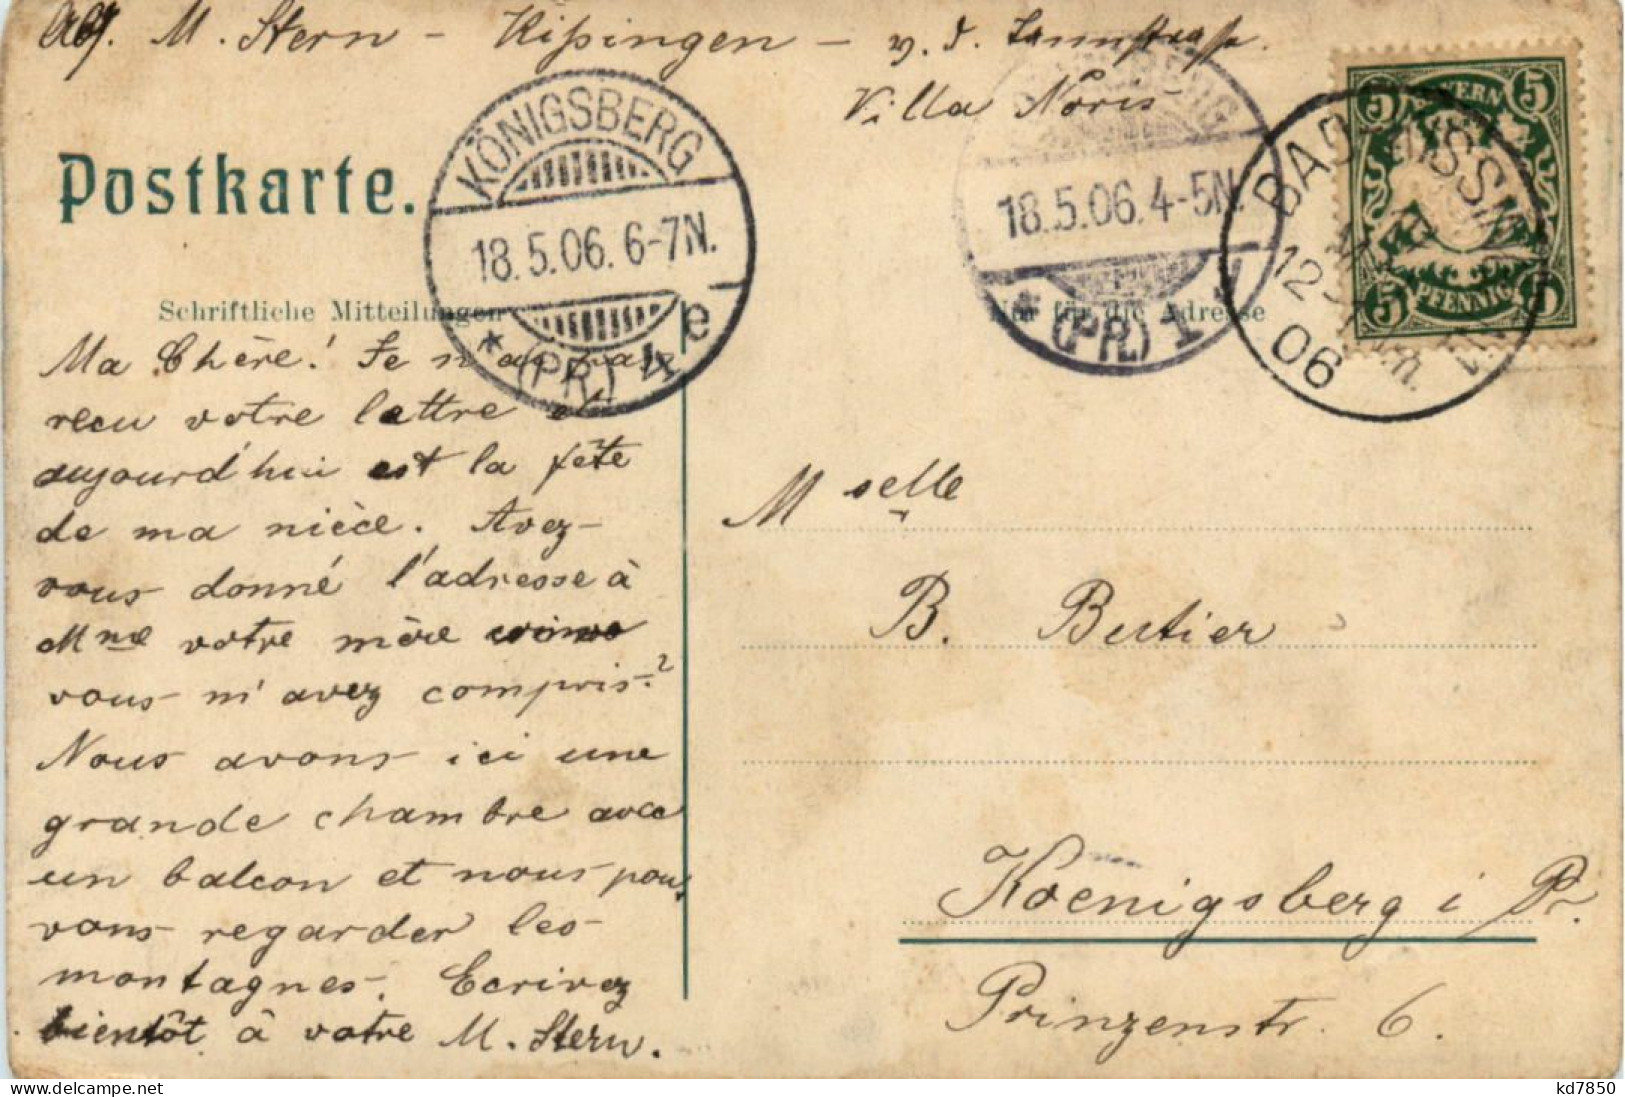 M. Stern – Kißingen – v. d.
Villa Noris
Postkarte.
KÖNIGSBERG
18.5.06. 6-7N.
* (PR.) 4 e
18.5.06. 4-5N.
(PR.) 1
BAD KISSIN
12-1
06
BAYERN
5 5
PFENNIG
5 5
Schriftliche Mitteilungen
Nur für die Adresse
Ma Chère! Je n'ai pas
recu votre lettre et
aujourd'hui est la fête
de ma nièce. Avez-
vous donné l'adresse à
Mme votre mère
vous m'avez compris?
Nous avons ici une
grande chambre avec
un balcon et nous pou-
vons regarder les
montagnes. Ecrivez
bientôt à votre M. Stern.
Mselle
B. Bertier
Koenigsberg i Pr.
Prinzenstr. 6.
kd7850